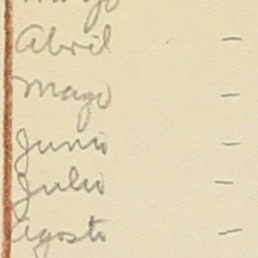 Marzo
Abril —
Mayo —
Junio —
Julio —
Agosto —